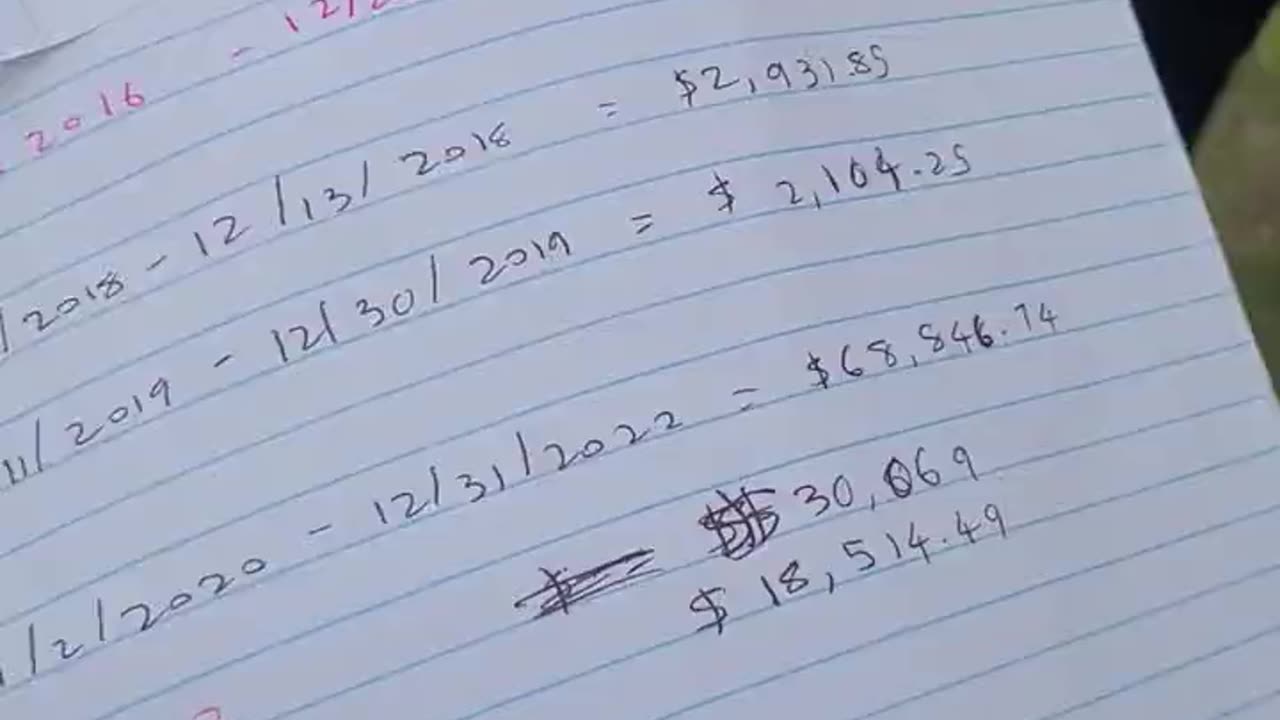 2016 - 12/2
/2018 - 12/13/2018 = $2,931.85
11/2019 - 12/30/2019 = $ 2,104.25
/2/2020 - 12/31/2022 = $68,846.74
30,069
$ 18,514.49